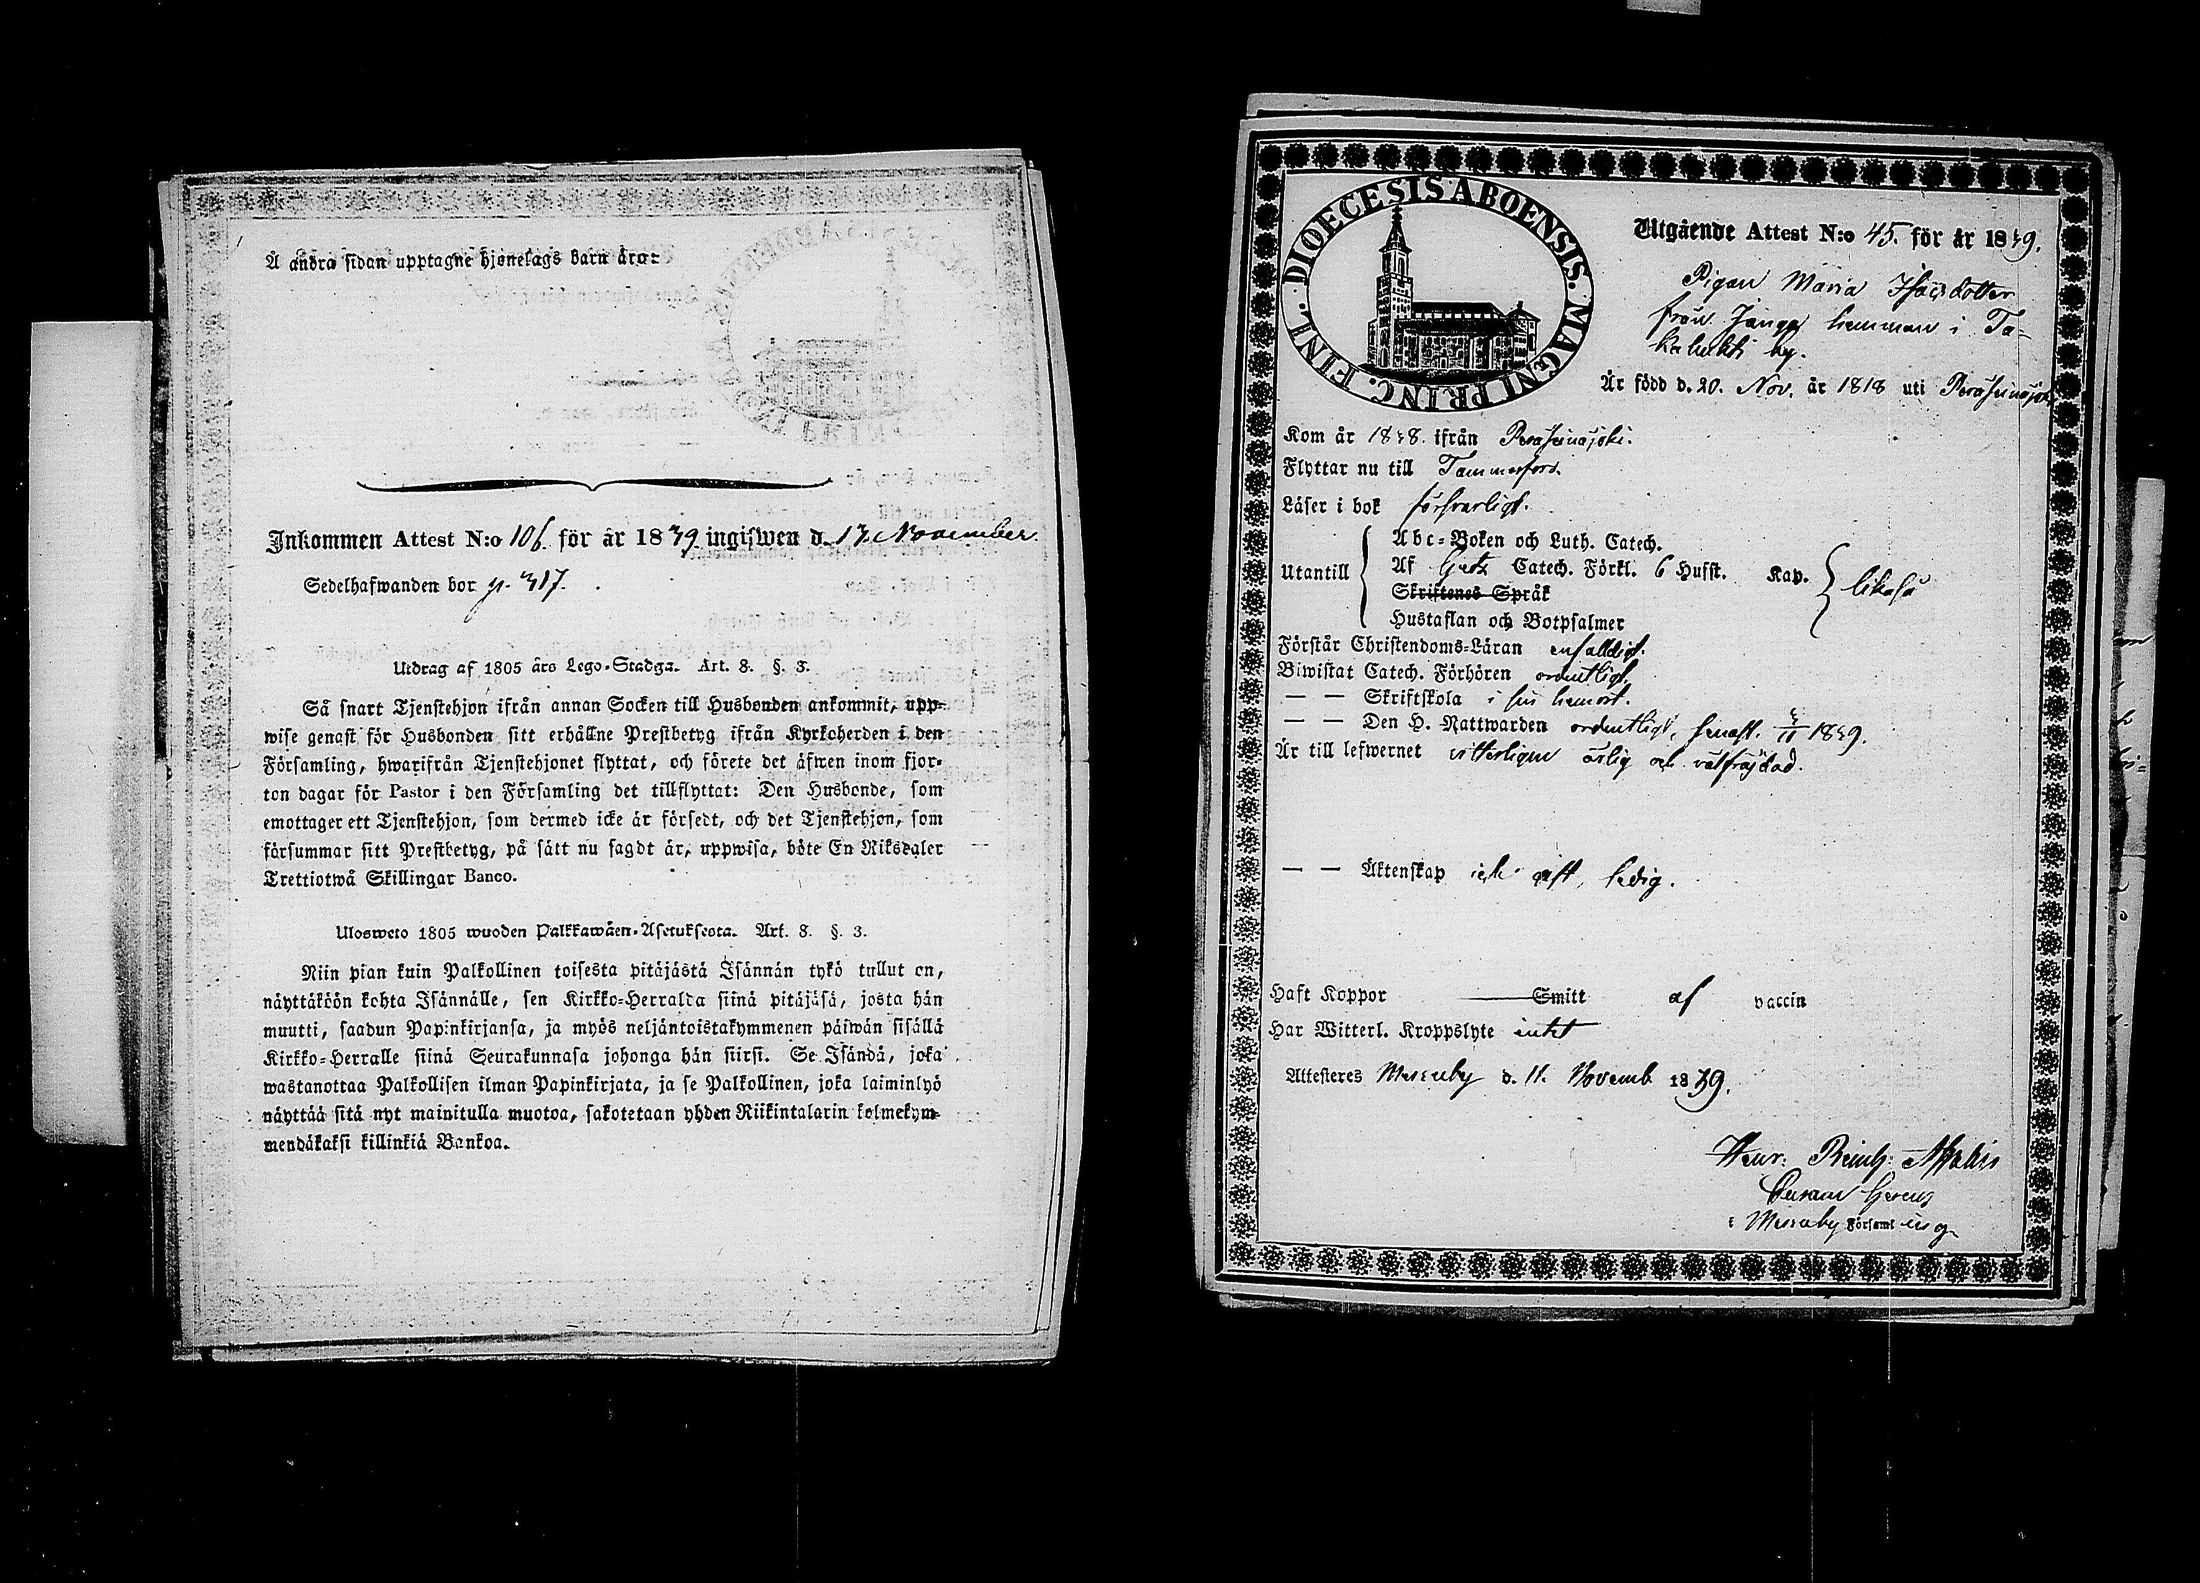 Å andra sidan upptagne hjonelags barn äro:
Inkommen Attest N:o 106. för år 1839 ingifwen d. 17 November.
Sedelhafwanden bor p. 317.
Utdrag af 1805 års Lego-Stadga. Art. 8. §. 3.
Så snart Tjenstehjon ifrån annan Socken till Husbonden ankommit, upp-
wise genast för Husbonden sitt erhållne Prestbetyg ifrån Kyrkoherden i den
Församling, hwarifrån Tjenstehjonet flyttat, och förete det äfwen inom fjor-
ton dagar för Pastor i den Församling det tillflyttat: Den Husbonde, som
emottager ett Tjenstehjon, som dermed icke är försedt, och det Tjenstehjon, som
försummar sitt Prestbetyg, på sätt nu sagdt är, uppwisa, böte En Riksdaler
Trettiotwå Skillingar Banco.
Ulosweto 1805 wuoden Palkkawäen-Asetuksesta. Art. 8. §. 3.
Niin pian kuin Palkollinen toisesta pitäjästä Isännän tykö tullut on,
näyttäköön kohta Isännälle, sen Kirkko-Herralda siinä pitäjäsä, josta hän
muutti, saadun Papinkirjansa, ja myös neljäntoistakymmenen päiwän sisällä
Kirkko-Herralle siinä Seurakunnasa johonga hän siirsi. Se Isändä, joka
wastanottaa Palkollisen ilman Papinkirjata, ja se Palkollinen, joka laiminlyö
näyttää sitä nyt mainitulla muotoa, sakotetaan yhden Riikintalarin kolmekym-
mendäkaksi killinkiä Bankoa.
DIOECESIS ABOENSIS. MAGNI PRINC. FINL.
Utgående Attest N:o 45. för år 1839.
Pigan Maria Isacsdotter
från Jänga hemman i Ta-
kaluhti by.
Är född d. 20. Nov. år 1818 uti Peräseinäjoki
Kom år 1838. ifrån Peräseinäjoki.
Flyttar nu till Tammerfors.
Läser i bok försvarligt.
Utantill
Abc-Boken och Luth. Catech.
Af Catech. Förkl. 6 Hufst. Kap. likaså
Skriftenes Språk
Hustaflan och Botpsalmer
Förstår Christendoms-Läran enfaldigt.
Biwistat Catech. Förhören ordentligt,
— — Skriftskola i sin hemort.
— — Den H. Nattwarden ordentligt, senast. 3/11 1839.
Är till lefwernet vitterligen ärlig och välfräjdad.
— — Äktenskap icke gift, ledig.
Haft Koppor Smitt af vaccin
Har Witterl. Kroppslyte intet
Attesteres Messuby d. 11. Novemb. 1839.
Henr: Reinh:
i Messuby Församling